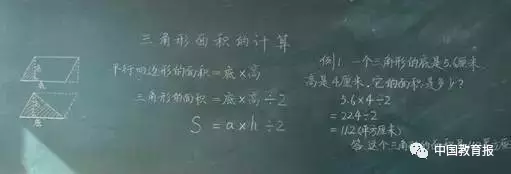 三角形面积的计算
平行四边形的面积=底×高
三角形的面积=底×高÷2
S=a×h÷2
高
底
高
底
例1 一个三角形的底是5.6厘米,
高是4厘米. 它的面积是多少?
5.6×4÷2
=22.4÷2
=11.2(平方厘米)
答:这个三角形的面积是
中国教育报